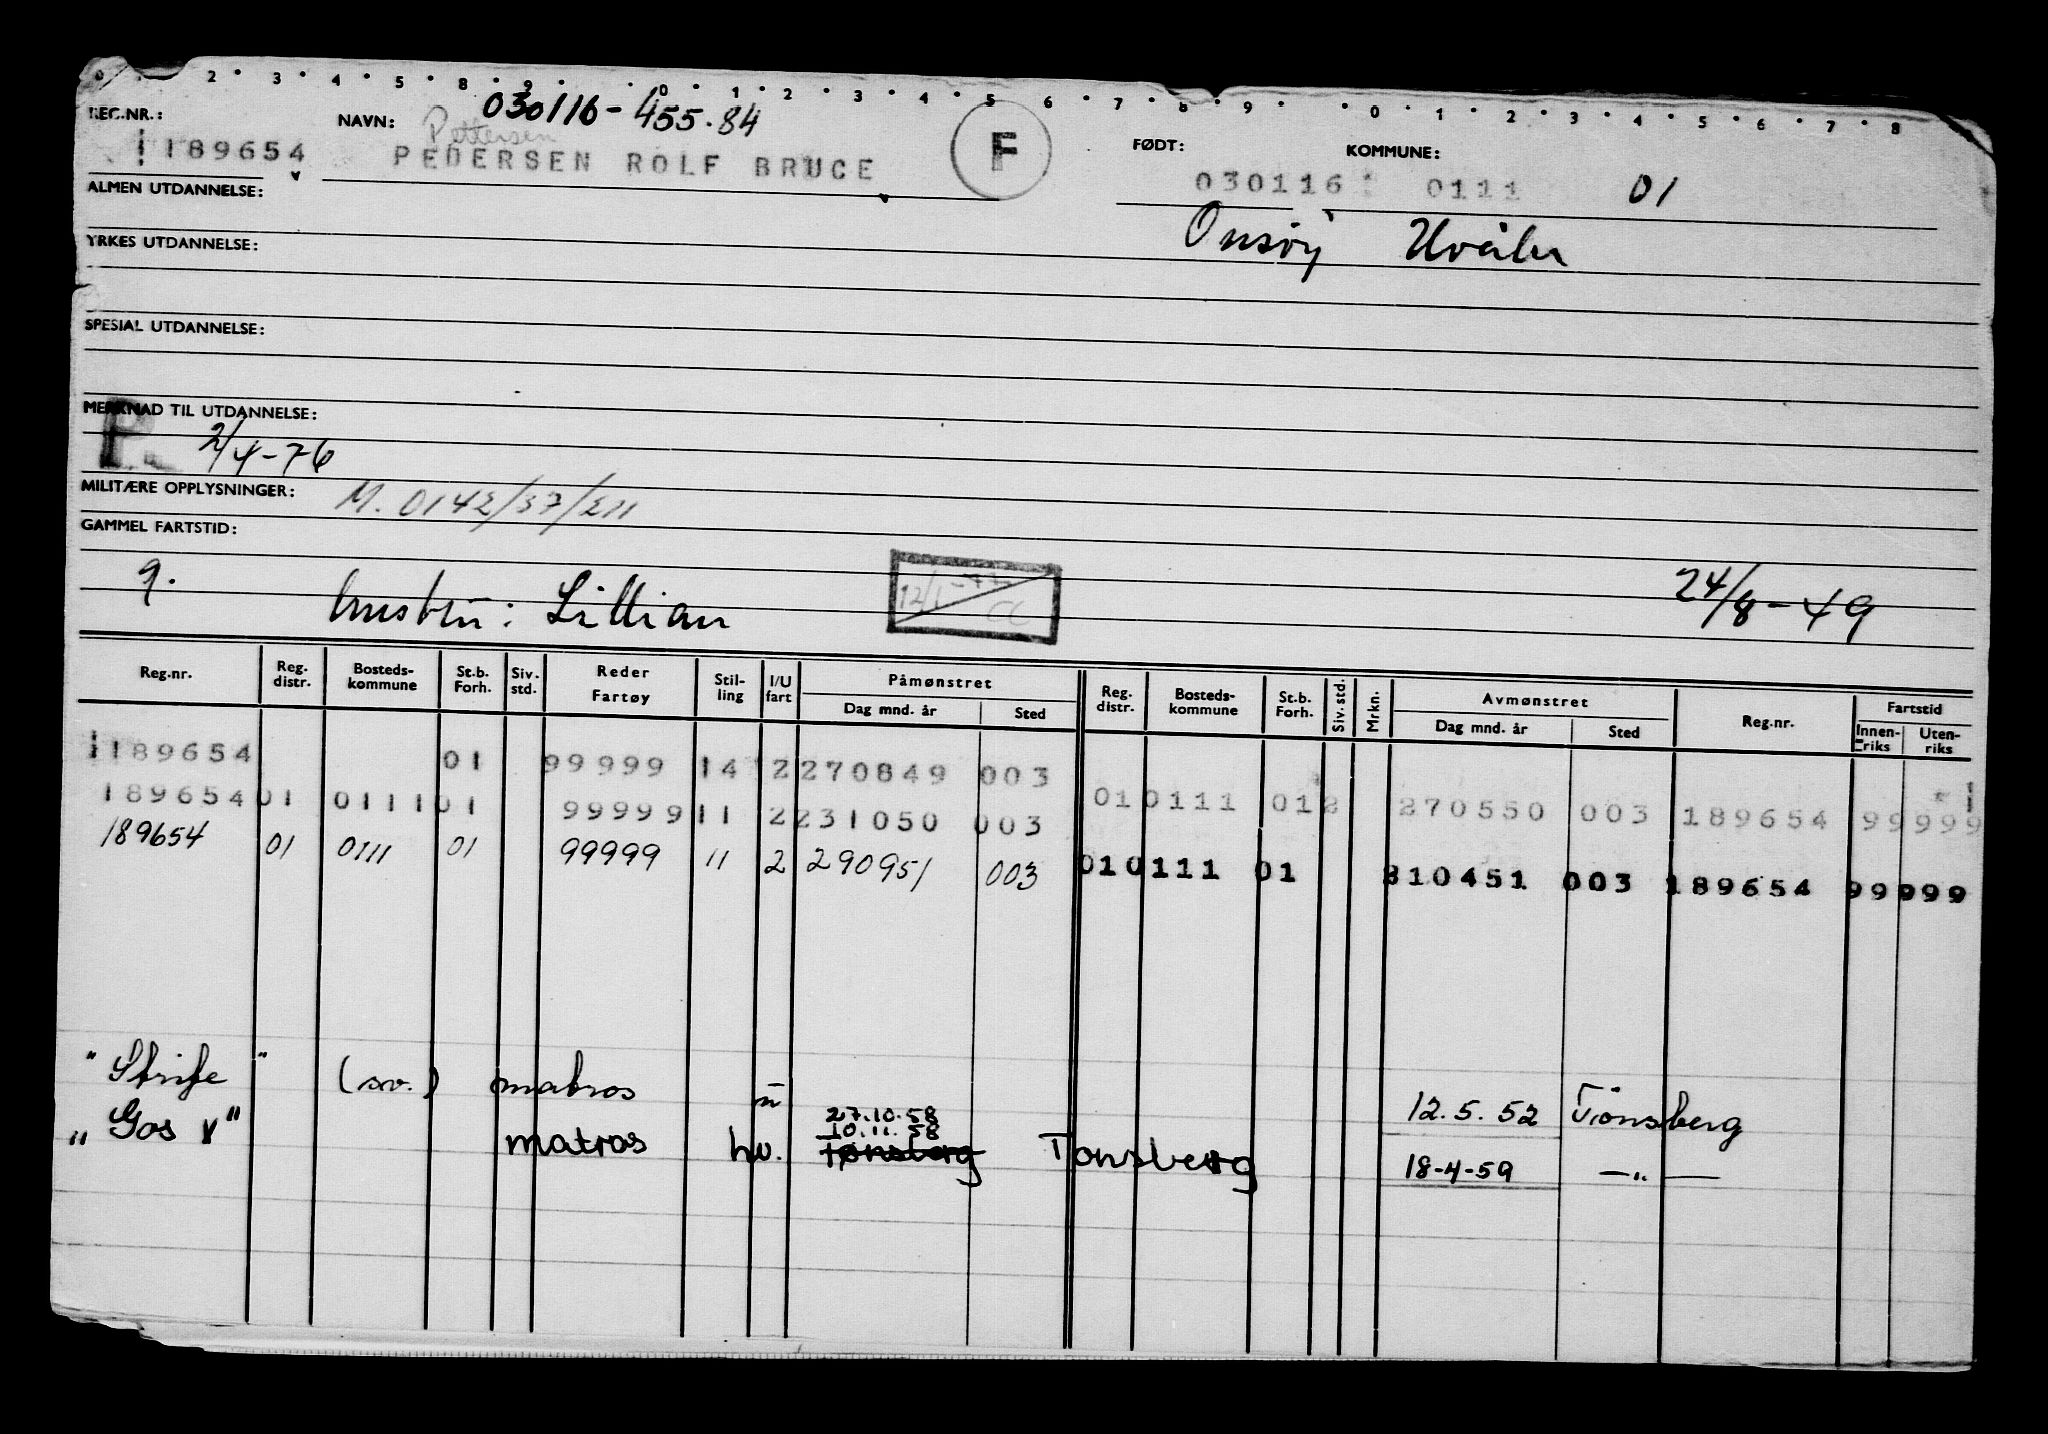 2 3 4 5 8 9 0 1 2 3 4 5 6 7 8 9 0 1 2 3 4 5 6 7 8
030116-455.84
REG.NR.: NAVN: Pettersen FØDT: KOMMUNE:
189654 PEDERSEN ROLF BRUCE F 030116 0111 01
ALMEN UTDANNELSE:
Onsøy Hvaler
YRKES UTDANNELSE:
SPESIAL UTDANNELSE:
MERKNAD TIL UTDANNELSE:
P 2/4-76
MILITÆRE OPPLYSNINGER: M. 0142/37/211
GAMMEL FARTSTID:
9. hustru: Lillian 12/1 CC 24/8-49
Reg.nr. Reg. distr. Bosteds-kommune St.b. Forh. Siv. std. Reder Fartøy Stil-ling I/U fart Påmønstret Dag mnd. år Sted Reg. distr. Bosteds-kommune St.b. Forh. Siv. std. Mrkn. Avmønstret Dag mnd. år Sted Reg.nr. Fartstid Innen-riks Uten-riks
189654 01 99999 14 2 270849 003
189654 01 0111 01 99999 11 2 231050 003 01 0111 01 2 270550 003 189654 99999
189654 01 0111 01 99999 11 2 290951 003 01 0111 01 310451 003 189654 99999
"Strife" (sv.) matros u 12.5.52 Tönsberg
27.10.58
10.11.58
"Gos V" matros hv. Tønsberg Tønsberg 18-4-59 —„—